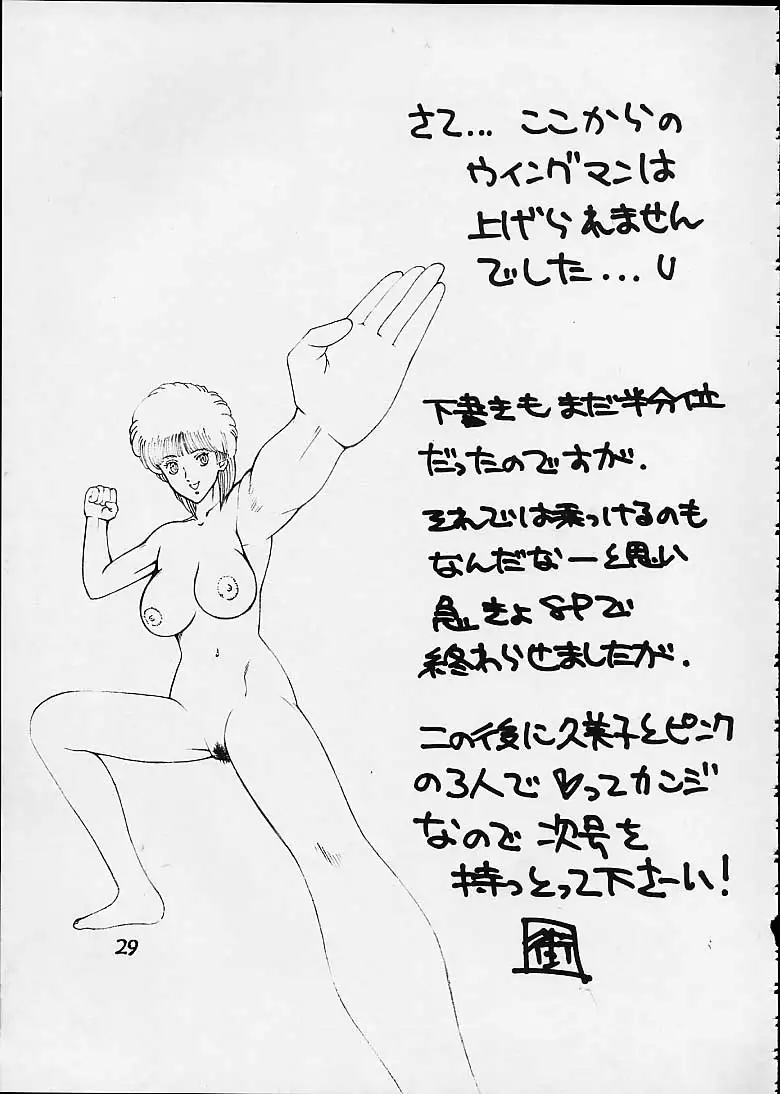 さて... ここからの
ウイングマンは
上げられません
でした...
下書きもまだ半分位
だったのですが.
それでは乗っけるのも
なんだなーと思い
急きょ8Pで
終わらせましたが.
この後に久美子とピンク
の3人で♡ってカンジ
なので次号を
持っとって下さーい!
街
29